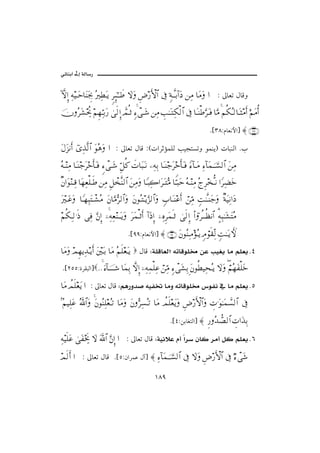 رسالة إلى أبنائي
وقال تعالى : ﴿ وَمَا مِن دَآبَّةٍ فِى ٱلْأَرْضِ وَلَا طَٰٓئِرٍ يَطِيرُ بِجَنَاحَيْهِ إِلَّآ
أُمَمٌ أَمْثَالُكُم ۚ مَّا فَرَّطْنَا فِى ٱلْكِتَٰبِ مِن شَىْءٍ ۚ ثُمَّ إِلَىٰ رَبِّهِمْ يُحْشَرُونَ
﴾ [الأنعام:٣٨].
ب. النبات (ينمو وتستجيب للمؤثرات): قال تعالى : ﴿ وَهُوَ ٱلَّذِىٓ أَنزَلَ
مِنَ ٱلسَّمَآءِ مَآءً فَأَخْرَجْنَا بِهِۦ نَبَاتَ كُلِّ شَىْءٍ فَأَخْرَجْنَا مِنْهُ
خَضِرًا نُّخْرِجُ مِنْهُ حَبًّا مُّتَرَاكِبًا وَمِنَ ٱلنَّخْلِ مِن طَلْعِهَا قِنْوَانٌ
دَانِيَةٌ وَجَنَّٰتٍ مِّنْ أَعْنَابٍ وَٱلزَّيْتُونَ وَٱلرُّمَّانَ مُشْتَبِهًا وَغَيْرَ
مُتَشَٰبِهٍ ۗ ٱنظُرُوٓا۟ إِلَىٰ ثَمَرِهِۦٓ إِذَآ أَثْمَرَ وَيَنْعِهِۦٓ ۚ إِنَّ فِى ذَٰلِكُمْ
لَءَايَٰتٍ لِّقَوْمٍ يُؤْمِنُونَ ﴾ [الأنعام:٩٩].
٤. يعلم ما يغيب عن مخلوقاته العاقلة: قال ﴿ يَعْلَمُ مَا بَيْنَ أَيْدِيهِمْ وَمَا
خَلْفَهُمْ ۖ وَلَا يُحِيطُونَ بِشَىْءٍ مِّنْ عِلْمِهِۦٓ إِلَّا بِمَا شَآءَ ..﴾ [البقرة:٢٥٥].
٥. يعلم ما في نفوس مخلوقاته وما تخفيه صدورهم: قال تعالى : ﴿ يَعْلَمُ مَا
فِى ٱلسَّمَٰوَٰتِ وَٱلْأَرْضِ وَيَعْلَمُ مَا تُسِرُّونَ وَمَا تُعْلِنُونَ ۚ وَٱللَّهُ عَلِيمٌۢ
بِذَاتِ ٱلصُّدُورِ ﴾ [التغابن:٤].
٦. يعلم كل أمر كان سراً أم علانية: قال تعالى : ﴿ إِنَّ ٱللَّهَ لَا يَخْفَىٰ عَلَيْهِ
شَىْءٌ فِى ٱلْأَرْضِ وَلَا فِى ٱلسَّمَآءِ ﴾ [آل عمران:٥]. قال تعالى : ﴿ أَلَمْ
١٨٩